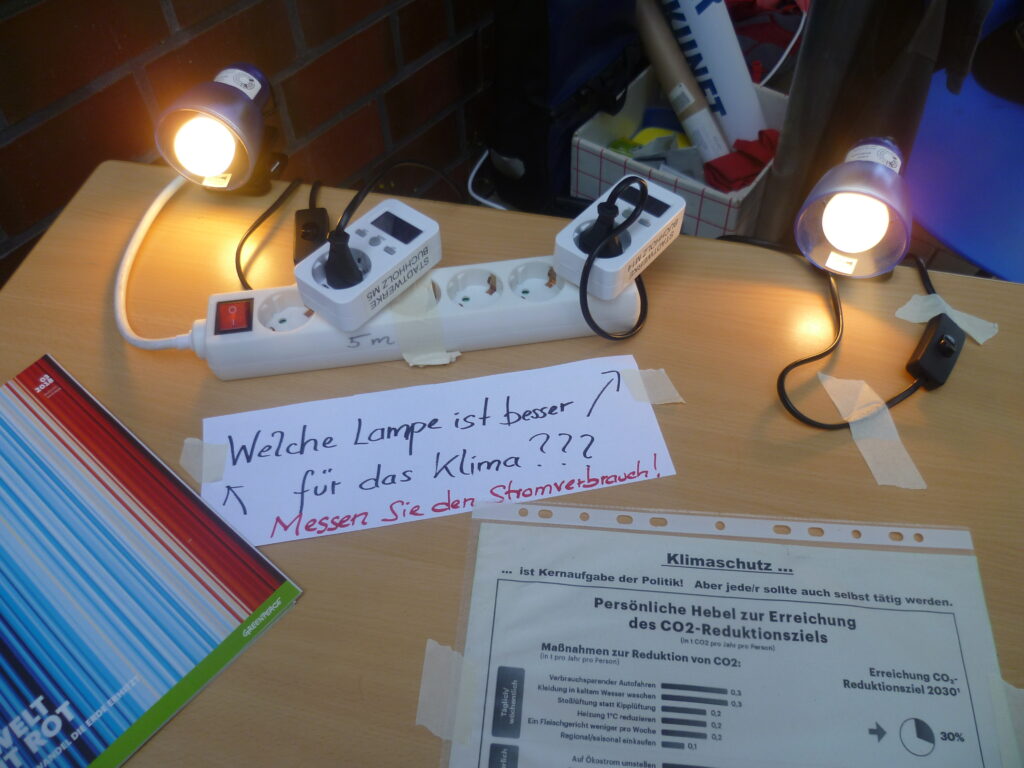 KUNFT
STADTWERKE
BUCHHOLZ M5
STADTWERKE
BUCHHOLZ M14
5m
Welche Lampe ist besser
für das Klima ???
Messen Sie den Stromverbrauch!
03
2018
GREENPEACE
WELT
ROT
Klimaschutz ...
... ist Kernaufgabe der Politik! Aber jede/r sollte auch selbst tätig werden.
Persönliche Hebel zur Erreichung
des CO2-Reduktionsziels
(in t CO2 pro Jahr pro Person)
Maßnahmen zur Reduktion von CO2:
(in t pro Jahr pro Person)
Täglich/
wöchentlich
Verbrauchsparender Autofahren 0,3
Kleidung in kaltem Wasser waschen 0,3
Stoßlüftung statt Kipplüftung 0,2
Heizung 1°C reduzieren 0,2
Ein Fleischgericht weniger pro Woche 0,2
Regional/saisonal einkaufen 0,1
Auf Ökostrom umstellen
Erreichung CO₂-
Reduktionsziel 2030¹
30%